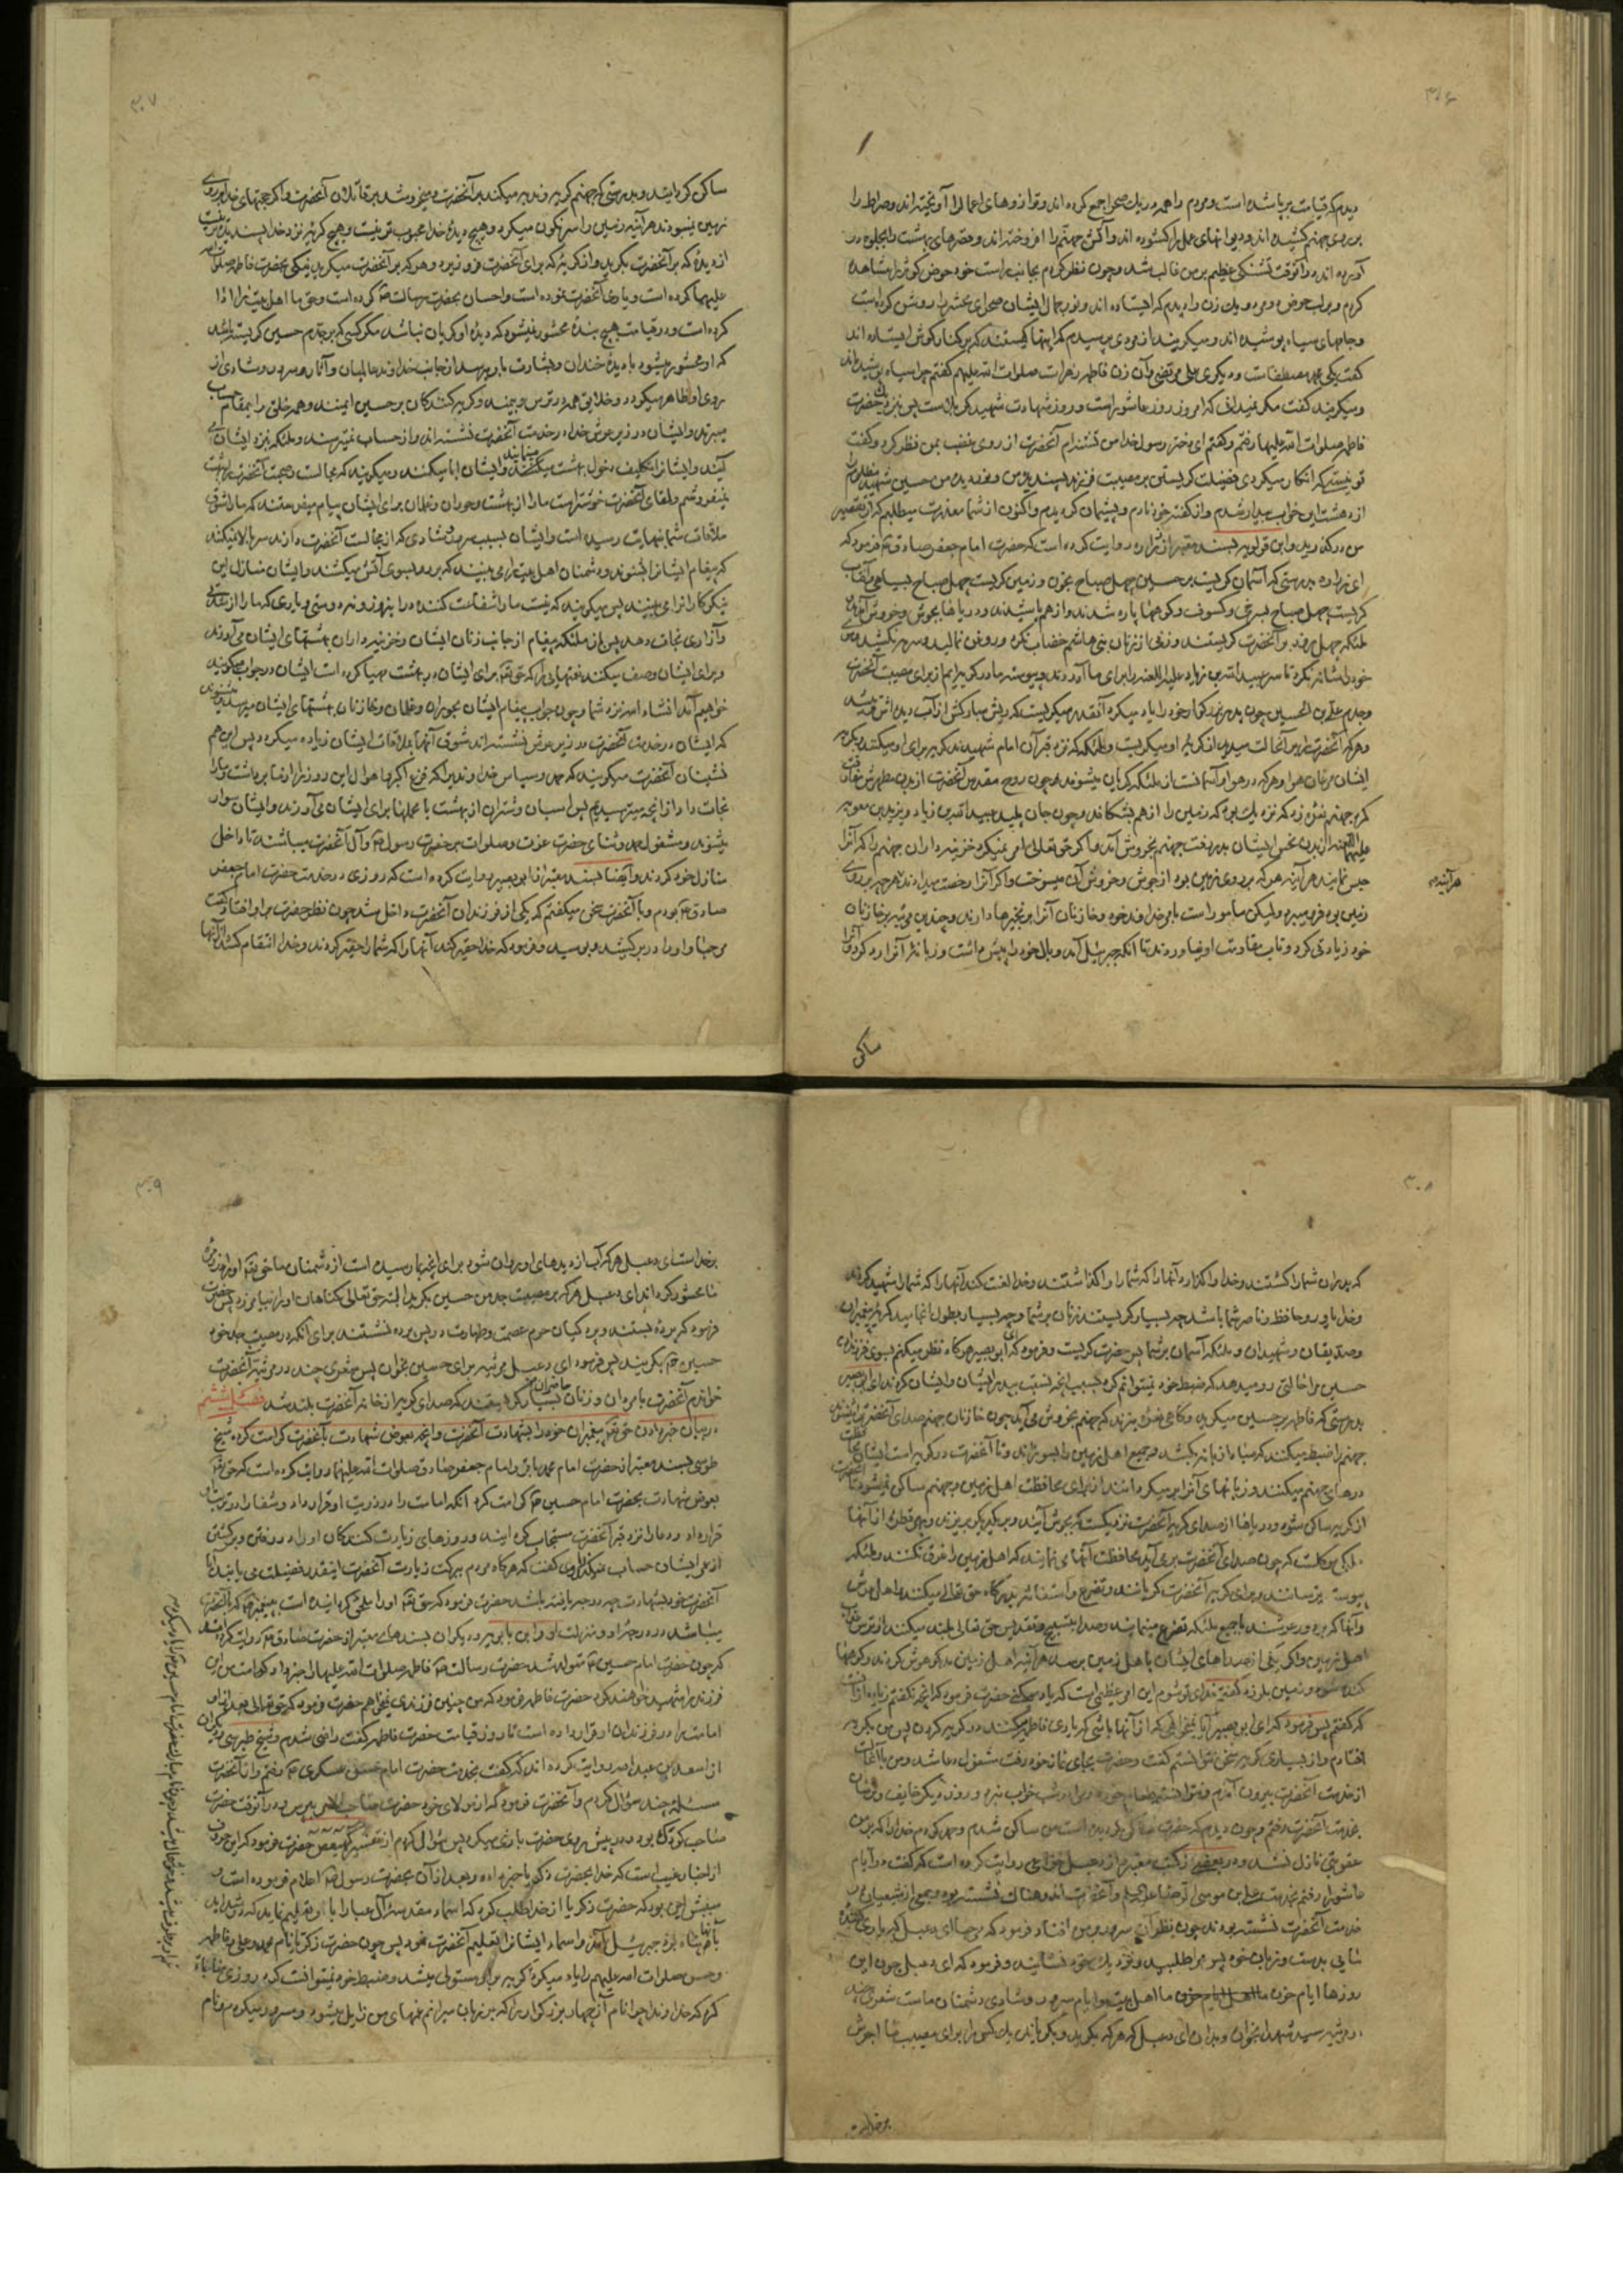 ۳۰۶
دیدم که قیامت برپا شده است و مردم را همه در یک صحرا جمع کرده اند و ترازوهای اعمال را آویخته اند و صراط را
بر روی جهنم کشیده اند و دیوانهای عمل را گشوده اند و آتش جهنم را افروخته اند و قصرهای بهشت را بجلوه در
آورده اند و در آنوقت تشنگی عظیم بر من غالب شد و چون نظر کردم بجانب راست خود حوض کوثر را مشاهده
کردم و بر لب حوض دو مرد و یک زن را دیدم که ایستاده اند و نور جمال ایشان صحرای محشر را روشن کرده است
و جامهای سیاه پوشیده اند و میگریند از مردی پرسیدم که اینها کیستند که بر کنار کوثر ایستاده اند
گفت یکی محمد مصطفاست و دیگری علی مرتضی و آن زن فاطمه زهراست صلوات الله علیهم گفتم چرا سیاه پوشیده اند
و میگریند گفت مگر نمیدانی که امروز روز عاشوراست و روز شهادت شهید کربلاست پس نزدیک حضرت
فاطمه صلوات الله علیها رفتم و گفتم ای دختر رسول خدا من تشنه ام آنحضرت از روی غضب بمن نظر کرد و گفت
تو نیستی که انکار میکردی فضیلت گریستن بر مصیبت فرزند پسندیده من و نور دیده من حسین شهید مظلوم را
از دهشت این خواب بیدار شدم و از گفته خود نادم و پشیمان گردیدم و اکنون از شما معذرت میطلبم که از تقصیر
من درگذرید و ابن قولویه بسند معتبر از زراره روایت کرده است که حضرت امام جعفر صادق ع فرمود که
ای زراره بدرستی که آسمان گریست بر حسین چهل صباح بخون و زمین گریست چهل صباح بسیاهی و آفتاب
گریست چهل صباح بسرخی و کسوف و کوهها پاره شدند و از هم پاشیدند و دریاها بجوش و خروش آمدند
ملئکه چهل روز بر آنحضرت گریستند و زنی از زنان بنی هاشم خضاب نکرد و روغن نمالید و سرمه نکشید و موی
خود را شانه نکرد تا سر عبیدالله بن زیاد علیه اللعنه را برای ما آوردند و پیوسته ما در گریه ایم از برای مصیبت آنحضرت
و جدم علی بن الحسین چون پدر بزرگوار خود را یاد میکرد آنقدر میگریست که ریش مبارکش از آب دیده اش تر میشد
و هر که آنحضرت را بر آنحالت میدید از گریه او میگریست و ملئکه که نزد قبر آن امام شهیدند گریه برای او میکنند و بگریه
ایشان مرغان هوا و هر که در هوا و آسمانست از ملئکه گریان میشوند و چون روح مقدس آنحضرت از بدن مطهرش مفارقت
کرد جهنم نعره زد که نزدیک بود که زمین را از هم بشکافد و چون جان پلید عبیدالله بن زیاد و یزید بن معویه
علیهما اللعنه از بدن نحس ایشان بدر رفت جهنم بخروش آمد و اگر حق تعالی امر نمیکرد خزینه داران جهنم را که آنرا
حبس نمایند هر آینه هر که بر روی زمین بود از جوش و خروش آن میسوخت و اگر آنرا رخصت میدادند هر چه بر روی
هر آینه
زمین بود فرو میبرد ولیکن مامور است بامر خداوند خود و خازنان آنرا بزنجیرها دارند و چندین مرتبه بر خازنان
خود زیادتی کرد و تاب مقاومت او نیاوردند تا آنکه جبرئیل آمد و بال خود را پیش داشت و زبانه آنرا رد کرد و آنرا
ساکن
۳۰۷
ساکن گردانید و بدرستی که جهنم گریه و ندبه میکند بر آنحضرت و میخروشد بر قاتلان آنحضرت و اگر حجتهای خدا بر روی
زمین نبودند هر آینه زمین را سرنگون میکرد و هیچ دیدهٔ خدا محبوب تر نیست و هیچ گریه نزد خدا پسندیده تر نیست
از دیدهٔ که بر آنحضرت بگرید و از گریهٔ که برای آنحضرت فرو ریزد و هر که بر آنحضرت میگرید نیکی بحضرت فاطمه صلوات الله
علیها کرده است و یاری آنحضرت نموده است و احسان بحضرت رسالت ص کرده است و حق ما اهل بیت را ادا
کرده است و در قیامت هیچ بندهٔ محشور نمیشود که دیدهٔ او گریان نباشد مگر کسی که بر جدم حسین گریسته باشد
که او محشور میشود با دیدهٔ خندان و بشارت باو میرسد از جانب خداوند عالمیان و آثار سرور و شادی از
روی او ظاهر میگردد و خلایق همه در ترس و بیمند و گریه کنندگان بر حسین ایمنند و همه خلق را بمقام حساب
میبرند و ایشان در زیر عرش خدا در خدمت آنحضرت نشسته اند و از حساب نمیترسند و ملئکه نزد ایشان می
آیند و ایشانرا تکلیف دخول بهشت مینمایند و ایشان ابا میکنند و میگویند که مجالست و صحبت آنحضرت را ببهشت
نمیفروشم و لقای آنحضرت خوشتر است ما را از بهشت و حوران و غلمان برای ایشان پیام میفرستند که ما را شوق
ملاقات شما بنهایت رسیده است و ایشان بسبب سرور و شادی که از مجالست آنحضرت دارند سر بالا نمیکنند
که پیغام ایشانرا بشنوند و دشمنان اهل بیت را می بینند که برو بسوی آتش میکشند و ایشان منازل این
نیکوکاران را می بینند پس میگویند که نیست ما را شفاعت کننده در این روز و نه دوستی و یاری که ما را از عذاب
و آزاری نجات دهد پس باز ملئکه پیغام از جانب زنان ایشان و خزینه داران بهشتهای ایشان می آورند
و برای ایشان وصف میکنند نعمتهایی را که حق تع برای ایشان در بهشت مهیا کرده است ایشان در جواب میگویند
خواهیم آمد انشاء الله نزد شما و چون جواب پیغام ایشان بحوران و غلمان و خازنان بهشتهای ایشان میرسد و میشنوند
که ایشان در خدمت آنحضرت در زیر عرش نشسته اند شوق آنها بملاقات ایشان زیاده میگردد پس این هم
نشینان آنحضرت میگویند که حمد و سپاس خداوندیرا که فزع اکبر و اهوال این روز را از ما برداشت و ما را
نجات داد از آنچه میترسیدیم پس اسبان و شتران از بهشت با محملها برای ایشان می آورند و ایشان سوار
میشوند و مشغول حمد و ثنای حضرت عزت و صلوات بر حضرت رسول ص و آل آنحضرت میباشند تا داخل
منازل خود گردند و ایضا بسند معتبر از ابو بصیر روایت کرده است که روزی در خدمت حضرت امام جعفر
صادق ع بودم و با آنحضرت سخن میگفتم که یکی از فرزندان آنحضرت داخل شد چون نظر حضرت بر او افتاد گفت
مرحبا و او را در بر کشید و بوسید و فرمود که خدا حقیر کند آنها را که شما را حقیر کردند و خدا انتقام کشد از آنها
۳۰۸
که پدران شما را کشتند و خدا واگذارد آنها را که شما را واگذاشتند و خدا لعنت کند آنها را که شما را شهید کردند
و خدا یاور و حافظ و ناصر شما باشد چه بسیار گریستند زنان بر شما و چه بسیار بطول انجامید گریهٔ پیغمبران
و صدیقان و شهیدان و ملئکه آسمان بر شما پس حضرت گریست و فرمود که ای ابو بصیر هر گاه نظر میکنم بسوی فرزندان
حسین مرا حالتی رو میدهد که ضبط خود نمیتوانم کرد بسبب آنچه نسبت بپدر ایشان و ایشان کردند ای ابو بصیر
بدرستی که فاطمه بر حسین میگرید و گاهی نعرهٔ میزند که جهنم بخروش می آید چون خازنان جهنم صدای آنحضرت را میشنوند
جهنم را ضبط میکنند که مبادا زبانه بکشد و جمیع اهل زمین را بسوزاند و تا آنحضرت در گریه است ایشان محافظت
درهای جهنم میکنند و زبانهای آنرا بر میگردانند از برای محافظت اهل زمین و جهنم ساکن نمیشود تا آنحضرت
از گریه ساکن شود و دریاها از صدای گریه آنحضرت نزدیکست که بجوش آیند و بر یکدیگر بریزند و بهر قطره از آنها
ملکی موکلست که چون صدای آنحضرت بر می آید محافظت آنها می نمایند که اهل زمین را غرق نکنند و ملئکه
پیوسته ترسانند و برای گریه آنحضرت گریانند و تضرع و استغاثه بدرگاه حق تعالی میکنند و اهل عرش
و آنها که بر دور عرشند با جمیع ملئکه تضرع مینمایند و صدا بتسبیح و تقدیس حق تعالی بلند میکنند از ترس عذاب
اهل زمین و اگر یکی از صداهای ایشان باهل زمین برسد هر آینه اهل زمین مدهوش گردند و کوهها
کنده شود و زمین بلرزد گفتم فدای تو شوم این امر عظیمی است که یاد میکنی حضرت فرمود که آنچه نگفتم زیاده از آنست
که گفتم پس فرمود که ای ابو بصیر آیا نمیخواهی که از آنها باشی که یاری فاطمه میکنند در گریه کردن پس من بگریه
افتادم و از بسیاری گریه سخن نتوانستم گفت و حضرت بجای نماز خود رفت مشغول دعا شد و من با آنحالت
از خدمت آنحضرت بیرون آمدم و نتوانستم طعام خورد و مرا در شب خواب نبرد و روز دیگر خایف و ترسان
بخدمت آنحضرت رفتم و چون دیدم که حضرت ساکن گردیده است من ساکن شدم و حمد کردم خدا را که بر من
عقوبتی نازل نشد و در بعضی از کتب معتبره از دعبل خزاعی روایت کرده است که گفت در ایام
عاشورا رفتم بخدمت علی بن موسی الرضا علیهما السلام و آنحضرت اندوهناک نشسته بود و جمعی از شیعیان در
خدمت آنحضرت نشسته بودند چون نظر آنحضرت بر من افتاد فرمود که مرحبا ای دعبل که یاری کننده
مایی بدست و زبان خود پس مرا طلبید و نزدیک خود نشانید و فرمود که ای دعبل چون این
روزها ایام حزن ما اهل بیت و ایام سرور و شادی دشمنان ماست شعری چند
در مرثیه سید شهدا بخوان و بدان ای دعبل که هر که بگرید و بگریاند یک کس را برای مصیبت ما اجرش
بر خداست
۳۰۹
بر خداست ای دعبل هر که آب از دیدهای او روان شود برای آنچه بما رسیده است از دشمنان ما حق تع او را در زمره
ما محشور گرداند ای دعبل هر که بر مصیبت جد من حسین بگرید البته حق تعالی گناهان او را بیامرزد پس حضرت
فرمود که پرده بستند و پردگیان حرم عصمت و طهارت در پس پرده نشستند برای آنکه در مصیبت جد خود
حسین ع بگریند پس فرمود ای دعبل مرثیه برای حسین بخوان پس شعری چند در مرثیه آنحضرت
خواندم آنحضرت با مردان و زنان بسیار گریستند که صدای گریه از خانه آنحضرت بلند شد فصل ششم
حاضران
در بیان خبر دادن حق تع پیغمبران خود را بشهادت آنحضرت و آنچه بعوض شهادت بآنحضرت کرامت کرده شیخ
طوسی بسند معتبر از حضرت امام محمد باقر و امام جعفر صادق صلوات الله علیهما روایت کرده است که حق تع
بعوض شهادت بحضرت امام حسین ع کرامت کرد آنکه امامت را در ذریت او قرار داد و شفا را در تربت او
قرار داد و دعا را نزد قبر آنحضرت مستجاب گردانید و روزهای زیارت کنندگان او را در رفتن و برگشتن
از عمر ایشان حساب نمیکند راوی گفت که هر گاه مردم ببرکت زیارت آنحضرت اینقدر فضیلت می یابند آیا
آنحضرت خود بشهادت چه درجه یافته باشد حضرت فرمود که حق تع او را ملحق گردانیده است به پیغمبر ص که با آنحضرت
میباشد در درجه او و منزلت او و ابن بابویه و دیگران بسندهای معتبر از حضرت صادق ع روایت کرده اند
که چون حضرت امام حسین ع متولد شد حضرت رسالت ص فاطمه صلوات الله علیها را خبر داد که امت من این
فرزند را شهید خواهند کرد حضرت فاطمه فرمود که من چنین فرزندی نمیخواهم حضرت فرمود که حق تعالی بعد از او
امامت را در فرزندان او قرار داده است تا روز قیامت حضرت فاطمه گفت راضی شدم و شیخ طبرسی و دیگران
از سعد بن عبدالله روایت کرده اند که گفت بخدمت حضرت امام حسن عسکری ع رفتم و از آنحضرت
مسئله چند سؤال کردم و آنحضرت فرمود که از مولای خود حضرت صاحب الامر بپرس و در آنوقت حضرت
صاحب کودک بود و در پیش روی حضرت بازی میکرد پس سؤال کردم از تفسیر کهیعص حضرت فرمود که این حروف
از اخبار غیب است که خدا بحضرت زکریا خبر داده و بعد از آن بحضرت رسول ص اعلام فرموده است و
سببش این بود که حضرت زکریا از خدا طلب کرد که اسماء مقدسه آل عبا را باو تعلیم نماید که در شداید
بآنها پناه برد جبرئیل آمد و اسماء ایشانرا تعلیم آنحضرت نمود پس چون حضرت زکریا نام محمد و علی و فاطمه
و حسن صلوات الله علیهم را یاد میکرد گریه بر او مستولی میشد و ضبط خود نمیتوانست کرد روزی مناجات
کرد که خداوندا چرا نام آن چهار بزرگوار را که بر زبان میرانم غمهای من زایل میشود و مسرور میگردم و نام